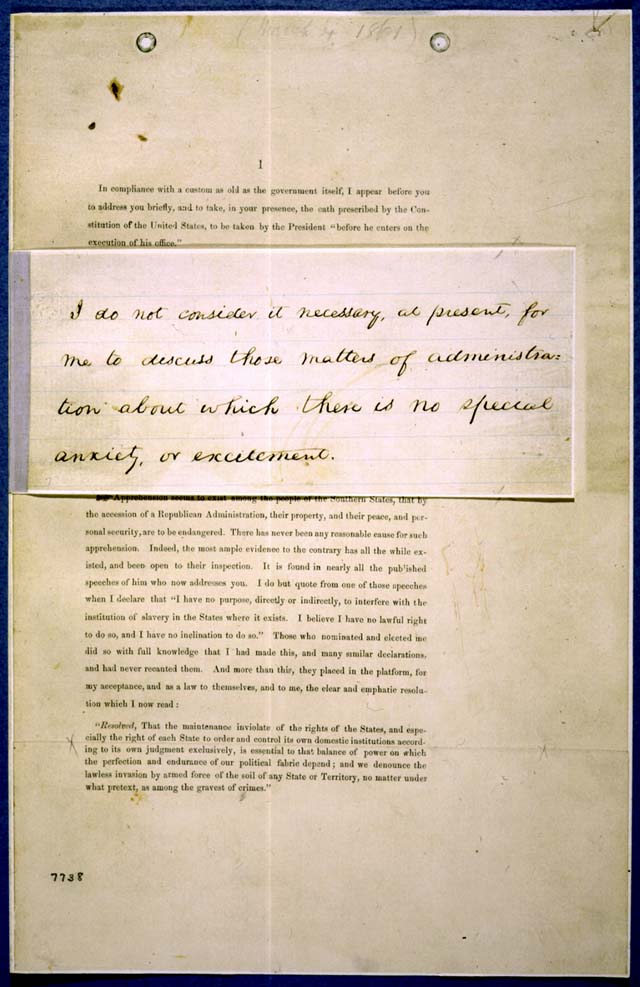 (March 4, 1861)
1
In compliance with a custom as old as the government itself, I appear before you
to address you briefly, and to take, in your presence, the oath prescribed by the Con-
stitution of the United States, to be taken by the President "before he enters on the
execution of his office."
I do not consider it necessary, at present, for
me to discuss those matters of administra=
tion about which there is no special
anxiety, or excitement.
Apprehension seems to exist among the people of the Southern States, that by
the accession of a Republican Administration, their property, and their peace, and per-
sonal security, are to be endangered. There has never been any reasonable cause for such
apprehension. Indeed, the most ample evidence to the contrary has all the while ex-
isted, and been open to their inspection. It is found in nearly all the published
speeches of him who now addresses you. I do but quote from one of those speeches
when I declare that "I have no purpose, directly or indirectly, to interfere with the
institution of slavery in the States where it exists. I believe I have no lawful right
to do so, and I have no inclination to do so." Those who nominated and elected me
did so with full knowledge that I had made this, and many similar declarations,
and had never recanted them. And more than this, they placed in the platform, for
my acceptance, and as a law to themselves, and to me, the clear and emphatic resolu-
tion which I now read:
"Resolved, That the maintenance inviolate of the rights of the States, and espe-
cially the right of each State to order and control its own domestic institutions accord-
ing to its own judgment exclusively, is essential to that balance of power on which
the perfection and endurance of our political fabric depend; and we denounce the
lawless invasion by armed force of the soil of any State or Territory, no matter under
what pretext, as among the gravest of crimes."
7738